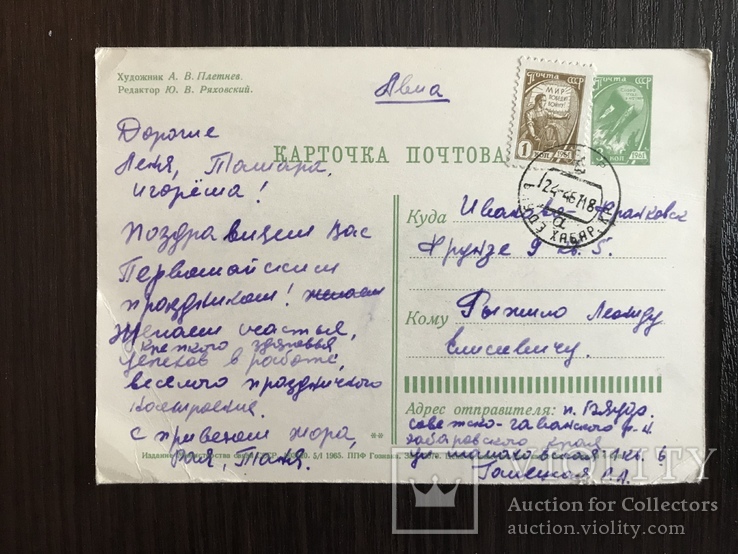 Художник А. В. Плетнев.
Редактор Ю. В. Ряховский.
Авиа
ПОЧТА СССР
МИР
ПОБЕДИТ
ВОЙНУ!
1 КОП 1961
ПОЧТА СССР
3 КОП 1961
КАРТОЧКА ПОЧТОВАЯ
Дорогие
Леня, Тамара,
Игорёша!
Поздравляем Вас
Первомайским
праздником! желаем
Желаем счастья,
крепкого здоровья
успехов в работе,
веселого праздничного
настроения.
с приветом Жора,
Рая, Таня.
Куда Ивано-Франковск
Фрунзе 9 кв. 5.
Кому Рыжило Леониду
Елисеевичу.
Адрес отправителя: п.
советско-гаванского р-н
хабаровского края
кв. 6
ХАБАР.
**
5/I 1965. ППФ Гознака.
VIOLITY
Auction for Collectors
auction.violity.com